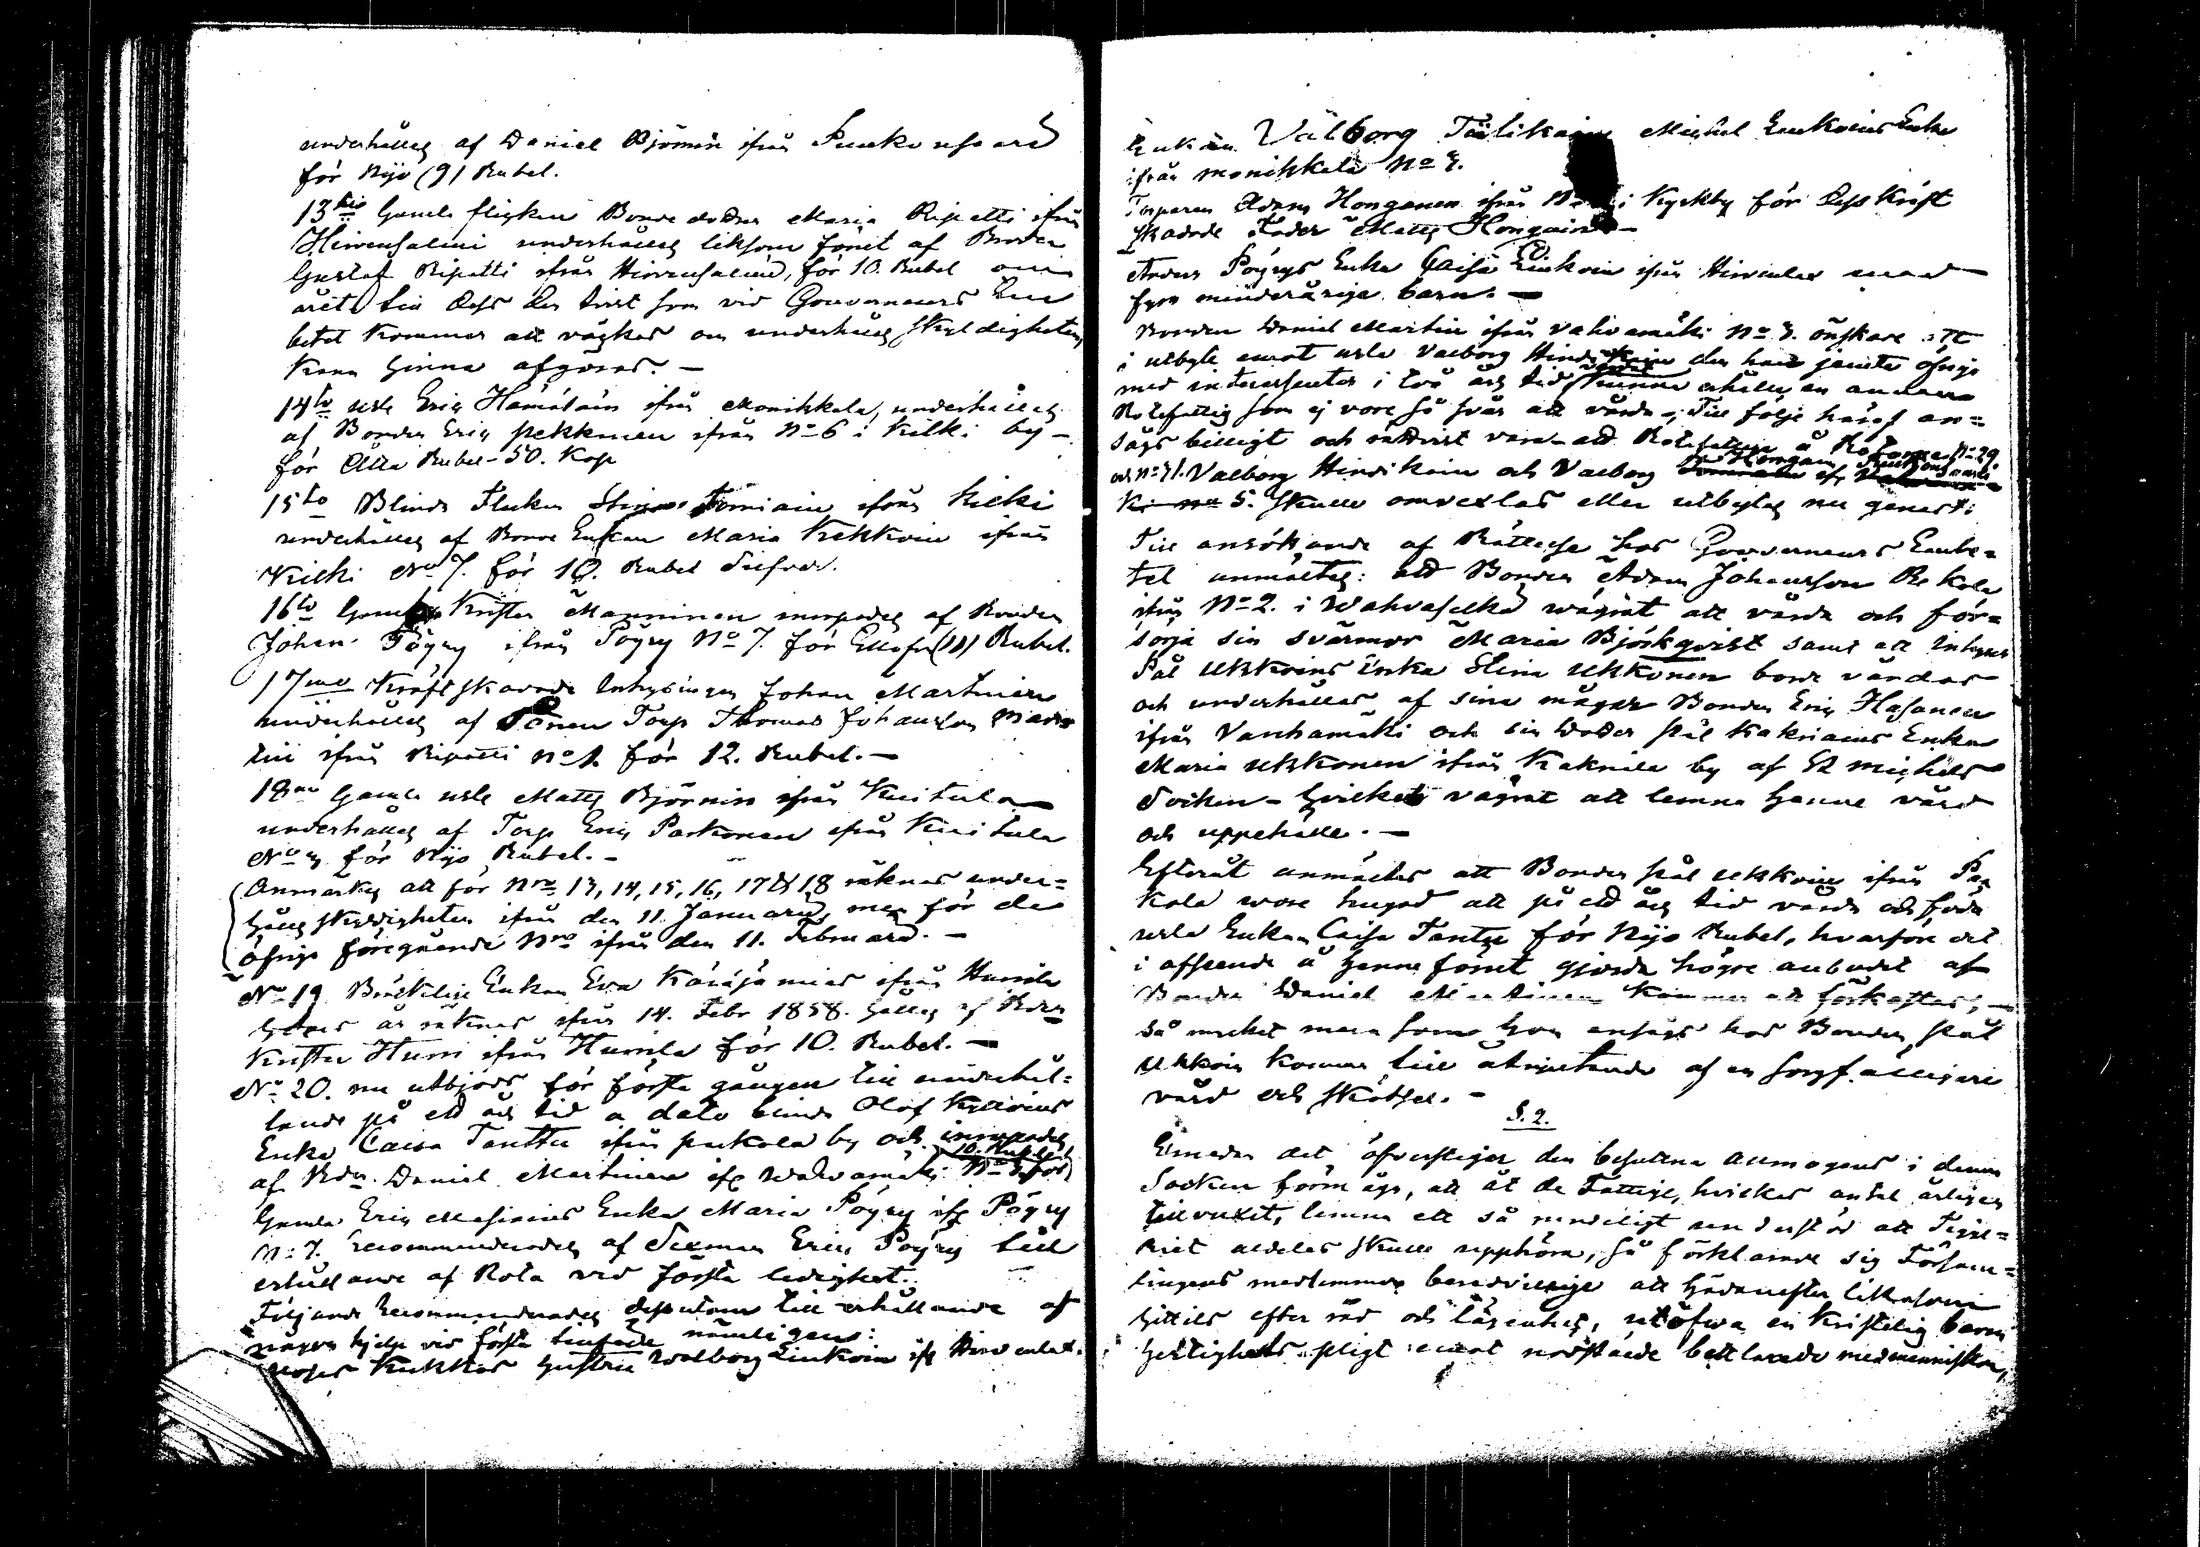 underhålles af Daniel Björnin ifrån
för Nijo (9) Rubel.
13tio Gamla flickan Bonde dotter Maria Ripatti ifrån
Hirvensalmi underhålles liksom förut af Broder
Gustaf Ripatti ifrån Hirvensalmi, för 10. Rubel om
året till dess den tvist som vid Gouverneurs Em
betet kommer att väckas om underhålls skyldigheten
kan hinna afgöras. —
14to usle Eric Hämäläin ifrån Monikkala, underhålles
af Bonden Eric Pekkinen ifrån No 6 i Kilki by —
för Åtta Rubel 50. Kop
15to Blinda Flickan Stina ifrån Kilki
underhålles af Bonde Enkan Maria Kekkoin ifrån
Kilki No 7. för 10. Rubel Silfver.
16to Gamla Krister Manninen inropades af Bonden
Johan Pöyry ifrån Pöyry No 7. för Ellofva (11) Rubel.
17mo Kraftskadade Inhysingen Johan Martinen
underhålles af Torp Thomas Johansson Mar
tin ifrån Ripatti No 1. för 12. Rubel. —
18no Gamla usle Matts Björnin ifrån Kuitula
underhålles af Torp Eric Parkonen ifrån Kuitula
No för Nijo Rubel. —
Anmärkes att för Nro 13, 14, 15, 16, 17 & 18 räknas under=
hålls skyldigheten ifrån den 11. Januarii, men för de
öfriga föregående Nro ifrån den 11. Februarii. —
No 19 Bräcklige Enkan Eva Käräjämies ifrån Humla
hvars år räknas ifrån 14. Febr 1858. hålles af Bden
Krister Humi ifrån Humla för 10. Rubel. —
No 20. nu utbjöds för första gången till underhål=
lande på ett års tid a dato blinde Olof
Enka Caisa Tanttu ifrån Purkola by och inropades
af Bdn Daniel Martinen ifr Wahvamäki No 3 för 10. Rubel
Gamla Eric Masiains Enka Maria Pöyry ifr Pöyry
No 7. recommenderades af Sexman Eric Pöyry till
erhållande af Rota vid första ledighet.
Följande recommenderades dessutom till erhållande af
någon hjelp vid första tillfälle nämligen:
Kukkos hustru Walborg Liukoin ifr Hirvenlax.
Enkan Valborg Michel Enka
ifrån Monikkala No 3.
Torparen Adam Honganen ifrån i Kyrkby för dess Krist
skadade Fader Matts
Anders Pöyrys Enka Caisa Liukoin ifrån Hirvenlax med
fyra minderåriga barn. —
Bonden Daniel Martin ifrån Vahvamäki No 3. önskade att
i utbyte emot usla Valborg den han jemte öfrige
med intressenter i två års tid vårdat kunna erhålla en annan
Rotefattig som ej vore så svår att vårda; Till följe häraf an=
sågs billigt och rättvist vara att å Rotarne No 29
och No 31. Valborg och Valborg ifr
No 5. skulle omvexlas eller utbytas nu genast.
Till ansökande af Rättelse hos Gouverneurs Embe=
tet anmältes: att Bonden Adam Johansson Rekola
ifrån No 2. i Wahvaselkä vägrat att vårda och för=
sörja sin svärmor Maria Björkqvist samt att Inhyses
Pål Ukkoins Enka Stina Ukkonen borde vårdas
och underhållas af sina mågar Bonden Eric Hasanen
ifrån Vanhamäki och sin dotter Pål Enka
Maria Ukkonen ifrån by af St Michels
Socken — hvilka vägrat att lemna henne vård
och uppehälle. —
Efteråt anmältes att Bonden Pål Ukkoin ifrån
wore hugad att på ett års tid vårda och föda
usla Enkan Caisa Tanttu för Nijo Rubel, hvarföre det
i afseende å henne förut gjorda högre anbudet af
Bonden Daniel Martinen kommer att förkastas, —
så mycket mera som hon ansågs hos Bonden Pål
Ukkoin komma till åtnjutande af en sorgfälligare
vård och skötsel. —
§. 2.
Emedan det öfverstiger den besuttna Allmogens i denna
Socken förmåga, att åt de Fattige, hvilkas antal årligen
tillvuxit, lemna ett så rundeligt understöd att Tigge=
riet alldeles skulle upphöra, så förklarade sig Försam=
lingens medlemmar beredvillige att hädanefter liksom
hittills efter råd och lägenhet, utöfwa en Kristelig barm
hertighets pligt emot nödstälde bettlande medmenniskor,